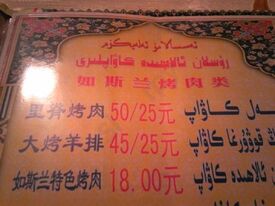 ئەسسالامۇ ئەلەيكۇم
رۇسلان ئالاھىدە كاۋاپلىرى
如斯兰烤肉类
里脊烤肉 50/25元 كاۋاپ
大烤羊排 45/25元 قوۋۇرغا كاۋاپ
如斯兰特色烤肉 18.00元 ئالاھىدە كاۋاپ